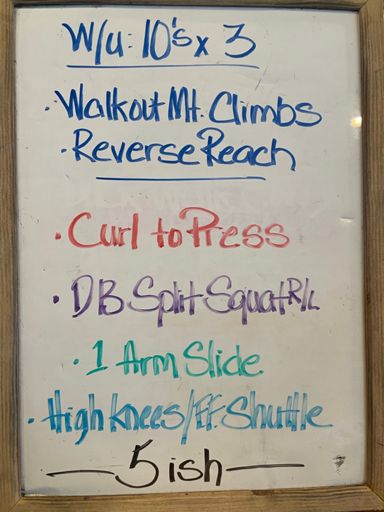 W/u: 10's x 3
· Walkout Mt. Climbs
· Reverse Reach
· Curl to Press
· DB Split Squat R/L
· 1 Arm Slide
· High Knees/FF Shuttle
— 5 ish —